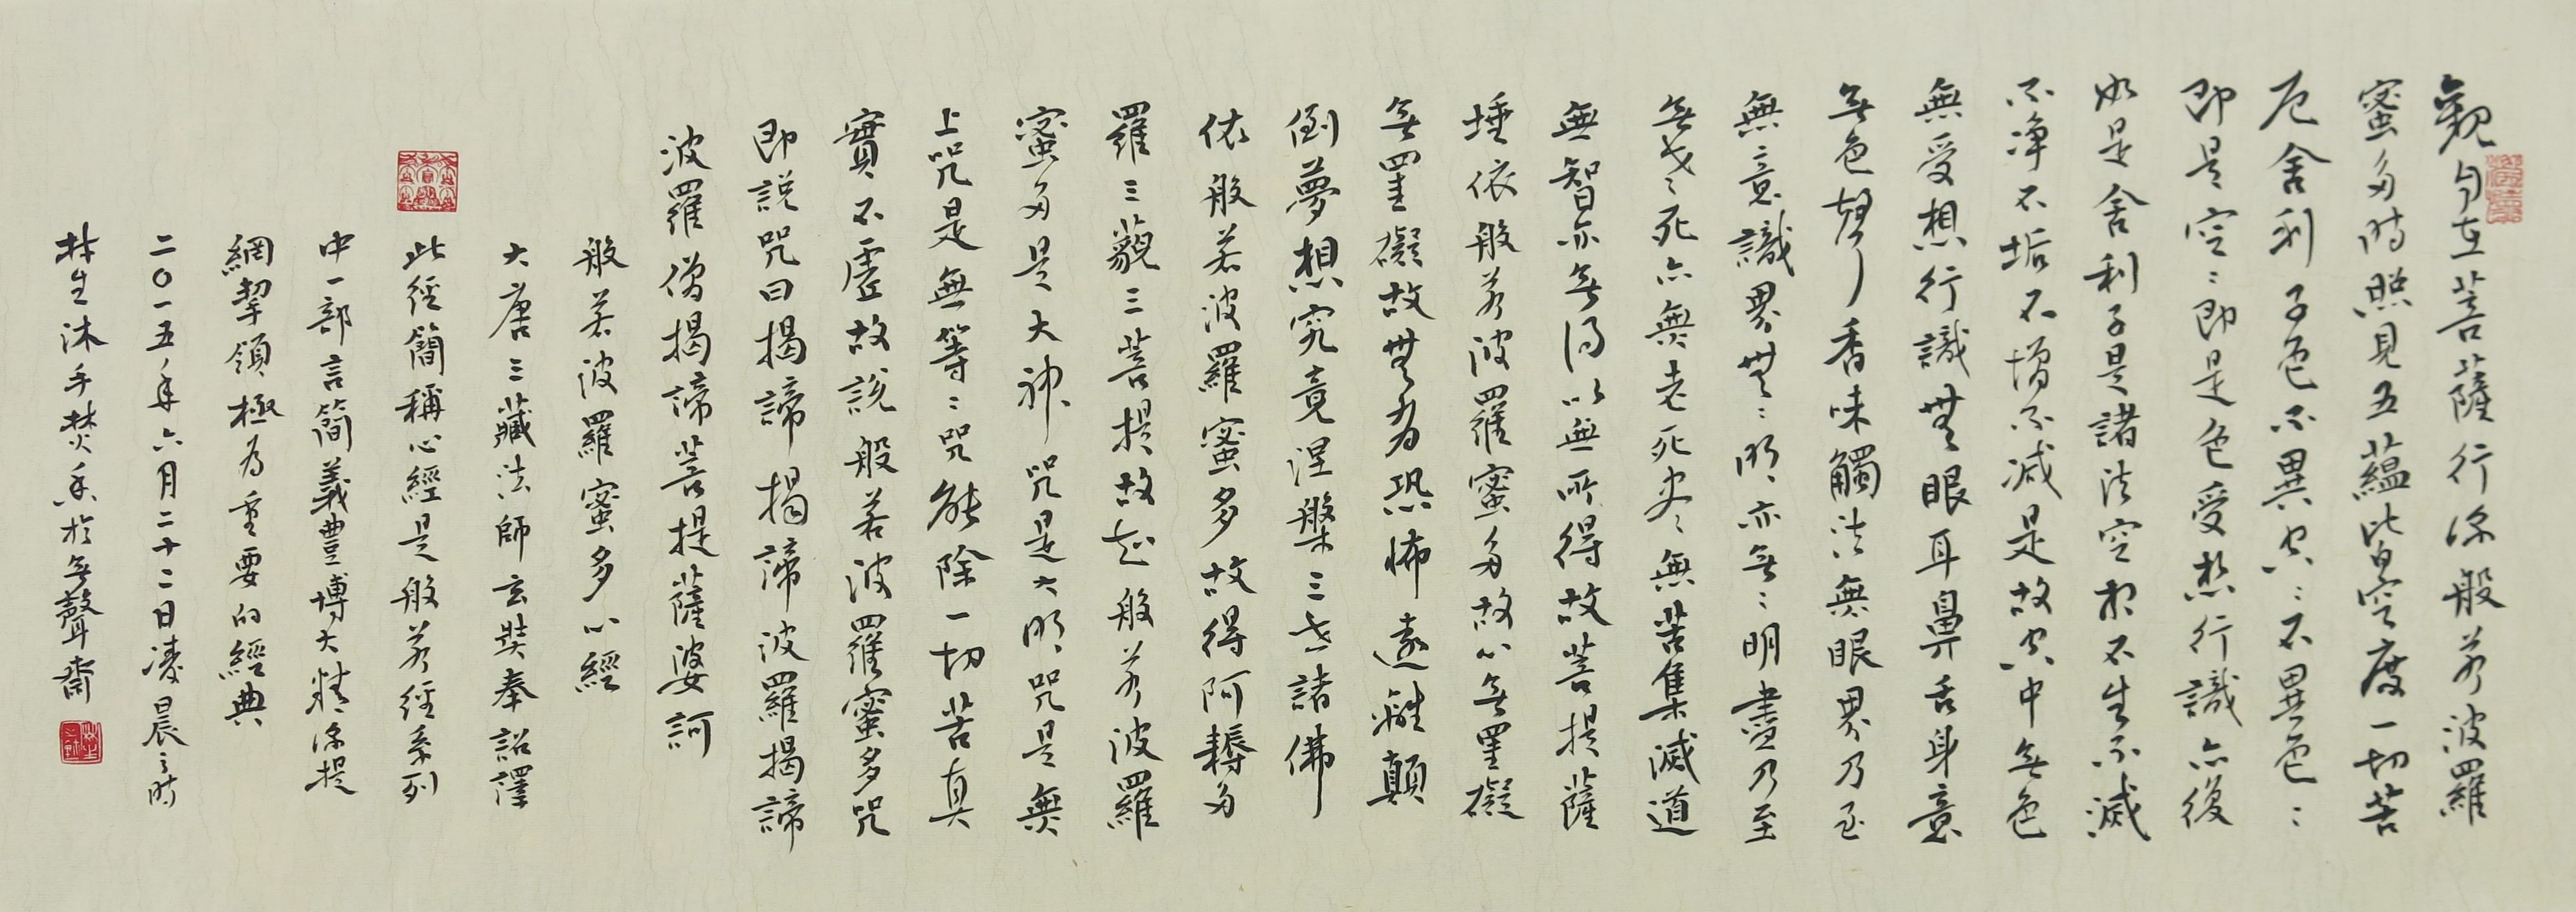 觀自在菩薩行深般若波羅
蜜多時照見五蘊皆空度一切苦
厄舍利子色不異空〻不異色〻
即是空〻即是色受想行識亦復
如是舍利子是諸法空相不生不滅
不淨不垢不增不減是故空中無色
無受想行識無眼耳鼻舌身意
無色聲香味觸法無眼界乃至
無意識界無〻明亦無〻明盡乃至
無老〻死亦無老死尽〻無苦集滅道
無智亦無得以無所得故菩提薩
埵依般若波羅蜜多故心無罣礙
無罣礙故無有恐怖遠離顛
倒夢想究竟涅槃三世諸佛
依般若波羅蜜多故得阿耨多
羅三藐三菩提故知般若波羅
蜜多是大神咒是大明咒是無
上咒是無等〻咒能除一切苦真
實不虛故說般若波羅蜜多咒
即說咒曰揭諦揭諦波羅揭諦
波羅僧揭諦菩提薩婆訶
般若波羅蜜多心經
大唐三藏法師玄奘奉詔譯
此經簡稱心經是般若經系列
中一部言簡義豐博大精深提
綱挈領極為重要的經典
二〇一五年六月二十二日凌晨之時
林生沐手焚香於無聲齋